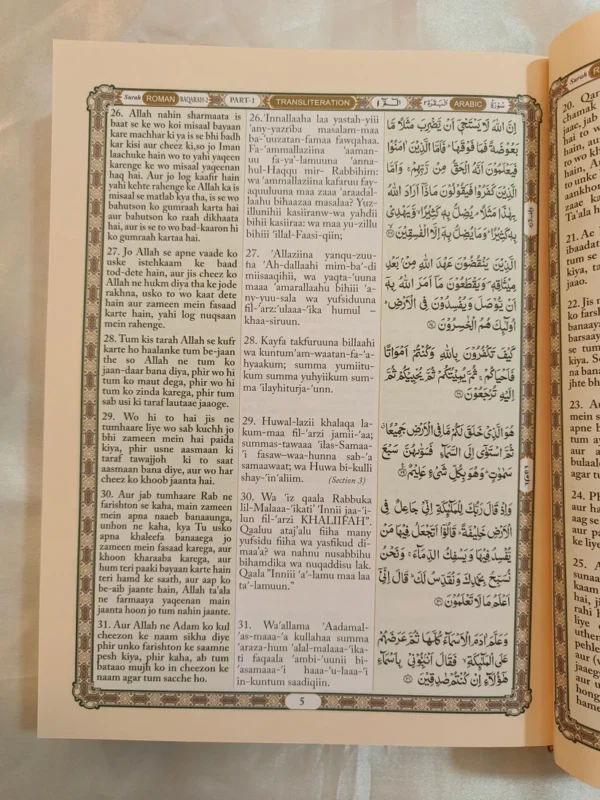 Surah ROMAN BAQARAH-2 PART-1 TRANSLITERATION الٓمّٓ ١ البقرة ٢ ARABIC سورة
26. Allah nahin sharmaata is
baat se ke wo koi misaal bayaan
kare machhar ki ya is se bhi badh
kar kisi aur cheez ki,so jo Iman
laachuke hain wo to yahi yaqeen
karenge ke wo misaal yaqeenan
haq hai. Aur jo log kaafir hain
yahi kehte rahenge ke Allah ka is
misaal se matlab kya tha, is se wo
bahutson ko gumraah karta hai
aur bahutson ko raah dikhaata
hai, aur is se to bad-kaaron hi
ko gumraah kartaa hai.
27. Jo Allah se apne vaade ko
uske istehkaam ke baad
tod-dete hain, aur jis cheez ko
Allah ne hukm diya tha ke jode
rakhna, usko to wo kaat dete
hain aur zameen mein fasaad
karte hain, yahi log nuqsaan
mein rahenge.
28. Tum kis tarah Allah se kufr
karte ho haalanke tum be-jaan
the so Allah ne tum ko
jaan-daar bana diya, phir wo hi
tum ko maut dega, phir wo hi
tum ko zinda karega, phir tum
sab usi ki taraf lautaae jaaoge.
29. Wo hi to hai jis ne
tumhaare liye wo sab kuchh jo
bhi zameen mein hai paida
kiya, phir usne aasmaan ki
taraf tawajjoh ki to saat
aasmaan bana diye, aur wo har
cheez ko khoob jaanta hai.
30. Aur jab tumhaare Rab ne
farishton se kaha, main zameen
mein apna naaeb banaaunga,
unhon ne kaha, kya Tu usko
apna khaleefa banaaega jo
zameen mein fasaad karega, aur
khoon kharaaba karega, aur
hum teri paaki bayaan karte hain
teri hamd ke saath, aur aap ko
be-aib jaante hain, Allah ta'ala
ne farmaaya yaqeenan main
jaanta hoon jo tum nahin jaante.
31. Aur Allah ne Adam ko kul
cheezon ke naam sikha diye
phir unko farishton ke saamne
pesh kiya, phir kaha, ab tum
bataao mujh ko in cheezon ke
naam agar tum sacche ho.
26. Innallaaha laa yastah-yiii
'any-yazriba masalam-maa
ba-'uuzatan-famaa fawqahaa.
Fa-'ammallaziina 'aaman-
uu fa-ya'-lamuuna 'anna-
hul-Haqqu mir- Rabbihim:
wa 'ammallaziina kafaruu fay-
aquuluuna maa zaaa 'araadal-
laahu bihaazaa masalaa? Yuz-
illumihii kasiiranw-wa yahdii
bihii kasiiraa: wa maa yu-zillu
bihiii 'illal-Faasi-qiin;
27. 'Allaziina yanqu-zuu-
na 'Ah-dallaahi mim-ba'-di
miisaaqihii, wa yaqta-'uuna
maaa 'amarallaahu bihiii 'a-
ny-yuu-sala wa yufsiduuna
fil-'arz:'ulaaa-'ika humul –
khaa-siruun.
28. Kayfa takfuruuna billaahi
wa kuntum'am-waatan-fa-'a-
hyaakum; summa yumiitu-
kum summa yuhyiikum sum-
ma 'ilayhiturja-'unn.
29. Huwal-lazii khalaqa la-
kum-maa fil-'arzi jamii-'aa;
summas-tawaaa 'ilas-Samaa-
'i fasaw-waa-hunna sab-'a
samaawaat; wa Huwa bi-kulli
shay-'in'aliim. (Section 3)
30. Wa 'iz qaala Rabbuka
lil-Malaaa-'ikati' Innii jaa-'i-
lun fil-'arzi KHALIIFAH".
Qaaluu ataj'alu fiiha many
yufsidu fiiha wa yasfikud di-
maa'a? wa nahnu nusabbihu
bihamdika wa nuqaddisu lak.
Qaala "Inniii 'a'-lamu maa laa
ta'-lamuun."
31. Wa'allama 'Aadamal-
'as-maaa-'a kullahaa summa
'araza-hum 'alal-malaaa-'ika-
ti faqaala 'ambi-'uunii bi-
'asamaaa-'i haaa-'u-laaa-'i
in-kuntum saadiqiin.
اِنَّ اللّٰهَ لَا يَسْتَحْيٖٓ اَنْ يَّضْرِبَ مَثَلًا مَّا
بَعُوْضَةً فَمَا فَوْقَهَا ؕ فَاَمَّا الَّذِيْنَ اٰمَنُوْا
فَيَعْلَمُوْنَ اَنَّهُ الْحَقُّ مِنْ رَّبِّهِمْ ۚ وَاَمَّا
الَّذِيْنَ كَفَرُوْا فَيَقُوْلُوْنَ مَاذَاۤ اَرَادَ اللّٰهُ
بِهٰذَا مَثَلًا ۘ يُضِلُّ بِهٖ كَثِيْرًا ۙ وَّيَهْدِيْ
بِهٖ كَثِيْرًا ؕ وَمَا يُضِلُّ بِهٖٓ اِلَّا الْفٰسِقِيْنَ ۙ ﴿۲۶﴾
الَّذِيْنَ يَنْقُضُوْنَ عَهْدَ اللّٰهِ مِنْۢ بَعْدِ
مِيْثَاقِهٖ ۪ وَيَقْطَعُوْنَ مَاۤ اَمَرَ اللّٰهُ بِهٖٓ
اَنْ يُّوْصَلَ وَيُفْسِدُوْنَ فِي الْاَرْضِ ؕ
اُولٰٓئِكَ هُمُ الْخٰسِرُوْنَ ﴿۲۷﴾
كَيْفَ تَكْفُرُوْنَ بِاللّٰهِ وَكُنْتُمْ اَمْوَاتًا
فَاَحْيَاكُمْ ۚ ثُمَّ يُمِيْتُكُمْ ثُمَّ يُحْيِيْكُمْ ثُمَّ
اِلَيْهِ تُرْجَعُوْنَ ﴿۲۸﴾
هُوَ الَّذِيْ خَلَقَ لَكُمْ مَّا فِي الْاَرْضِ جَمِيْعًا ۗ
ثُمَّ اسْتَوٰٓى اِلَى السَّمَآءِ فَسَوّٰىهُنَّ سَبْعَ
سَمٰوٰتٍ ؕ وَهُوَ بِكُلِّ شَيْءٍ عَلِيْمٌ ﴿۲۹﴾
وَاِذْ قَالَ رَبُّكَ لِلْمَلٰٓئِكَةِ اِنِّيْ جَاعِلٌ فِي
الْاَرْضِ خَلِيْفَةً ؕ قَالُوْۤا اَتَجْعَلُ فِيْهَا مَنْ
يُّفْسِدُ فِيْهَا وَيَسْفِكُ الدِّمَآءَ ۚ وَنَحْنُ
نُسَبِّحُ بِحَمْدِكَ وَنُقَدِّسُ لَكَ ؕ قَالَ اِنِّيْۤ
اَعْلَمُ مَا لَا تَعْلَمُوْنَ ﴿۳۰﴾
وَعَلَّمَ اٰدَمَ الْاَسْمَآءَ كُلَّهَا ثُمَّ عَرَضَهُمْ
عَلَى الْمَلٰٓئِكَةِ ۙ فَقَالَ اَنْۢبِـُٔوْنِيْ بِاَسْمَآءِ
هٰٓؤُلَآءِ اِنْ كُنْتُمْ صٰدِقِيْنَ ﴿۳۱﴾
5
Surah
20. Qar
chamak
jaae, jab
21. Ae
22. Jis n
ko farsh
23. A
24.
25. A